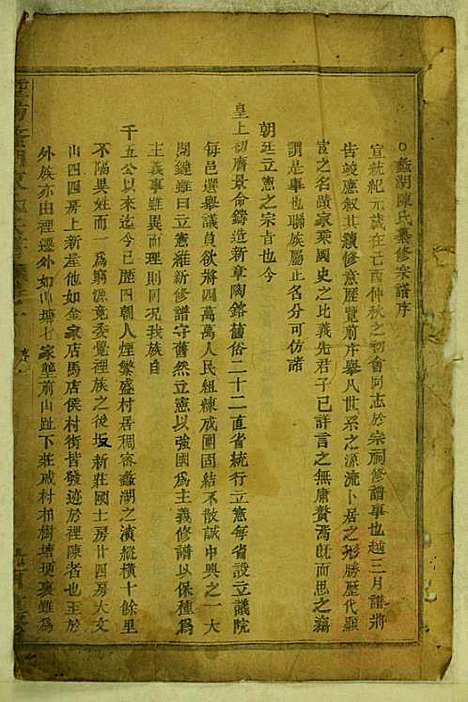 蠡湖陳氏纂修宗譜序
宣統紀元歲在己酉仲秋之初會同志於宗祠修譜事也越三月譜將
告竣應叙其續修意歷覽前序舉凡世系之源流卜居之形勝歷代顯
宦之名蹟家乘國史之比義先君子已詳言之無庸贅焉旣而之竊
謂是事也聯族屬正名分可仿諸
朝廷立憲之宗旨也今
皇上初膺景命鑄造新章陶鎔舊俗二十二直省統行立憲每省設立議院
每邑選舉議員欲將四萬萬人民組練成團固結不散誠中興之一大
關鍵雖曰立憲維新修譜守舊然立憲以強國爲主義修譜以保種爲
主義事雖異而理則同况我族自
千五公以來迄今已歷四朝人煙繁盛村居稠密蠡湖之濱縱橫十餘里
不隔異姓而一爲窮源竟委覺裡族之後坂新莊國士房廿四房大文
山四四房上新屋他如金家店馬店侯村街皆發迹於裡陳者也至於
外族亦由裡遷外如山塘七家壟前山趾下莊戚村柏樹塘埂裏雖爲